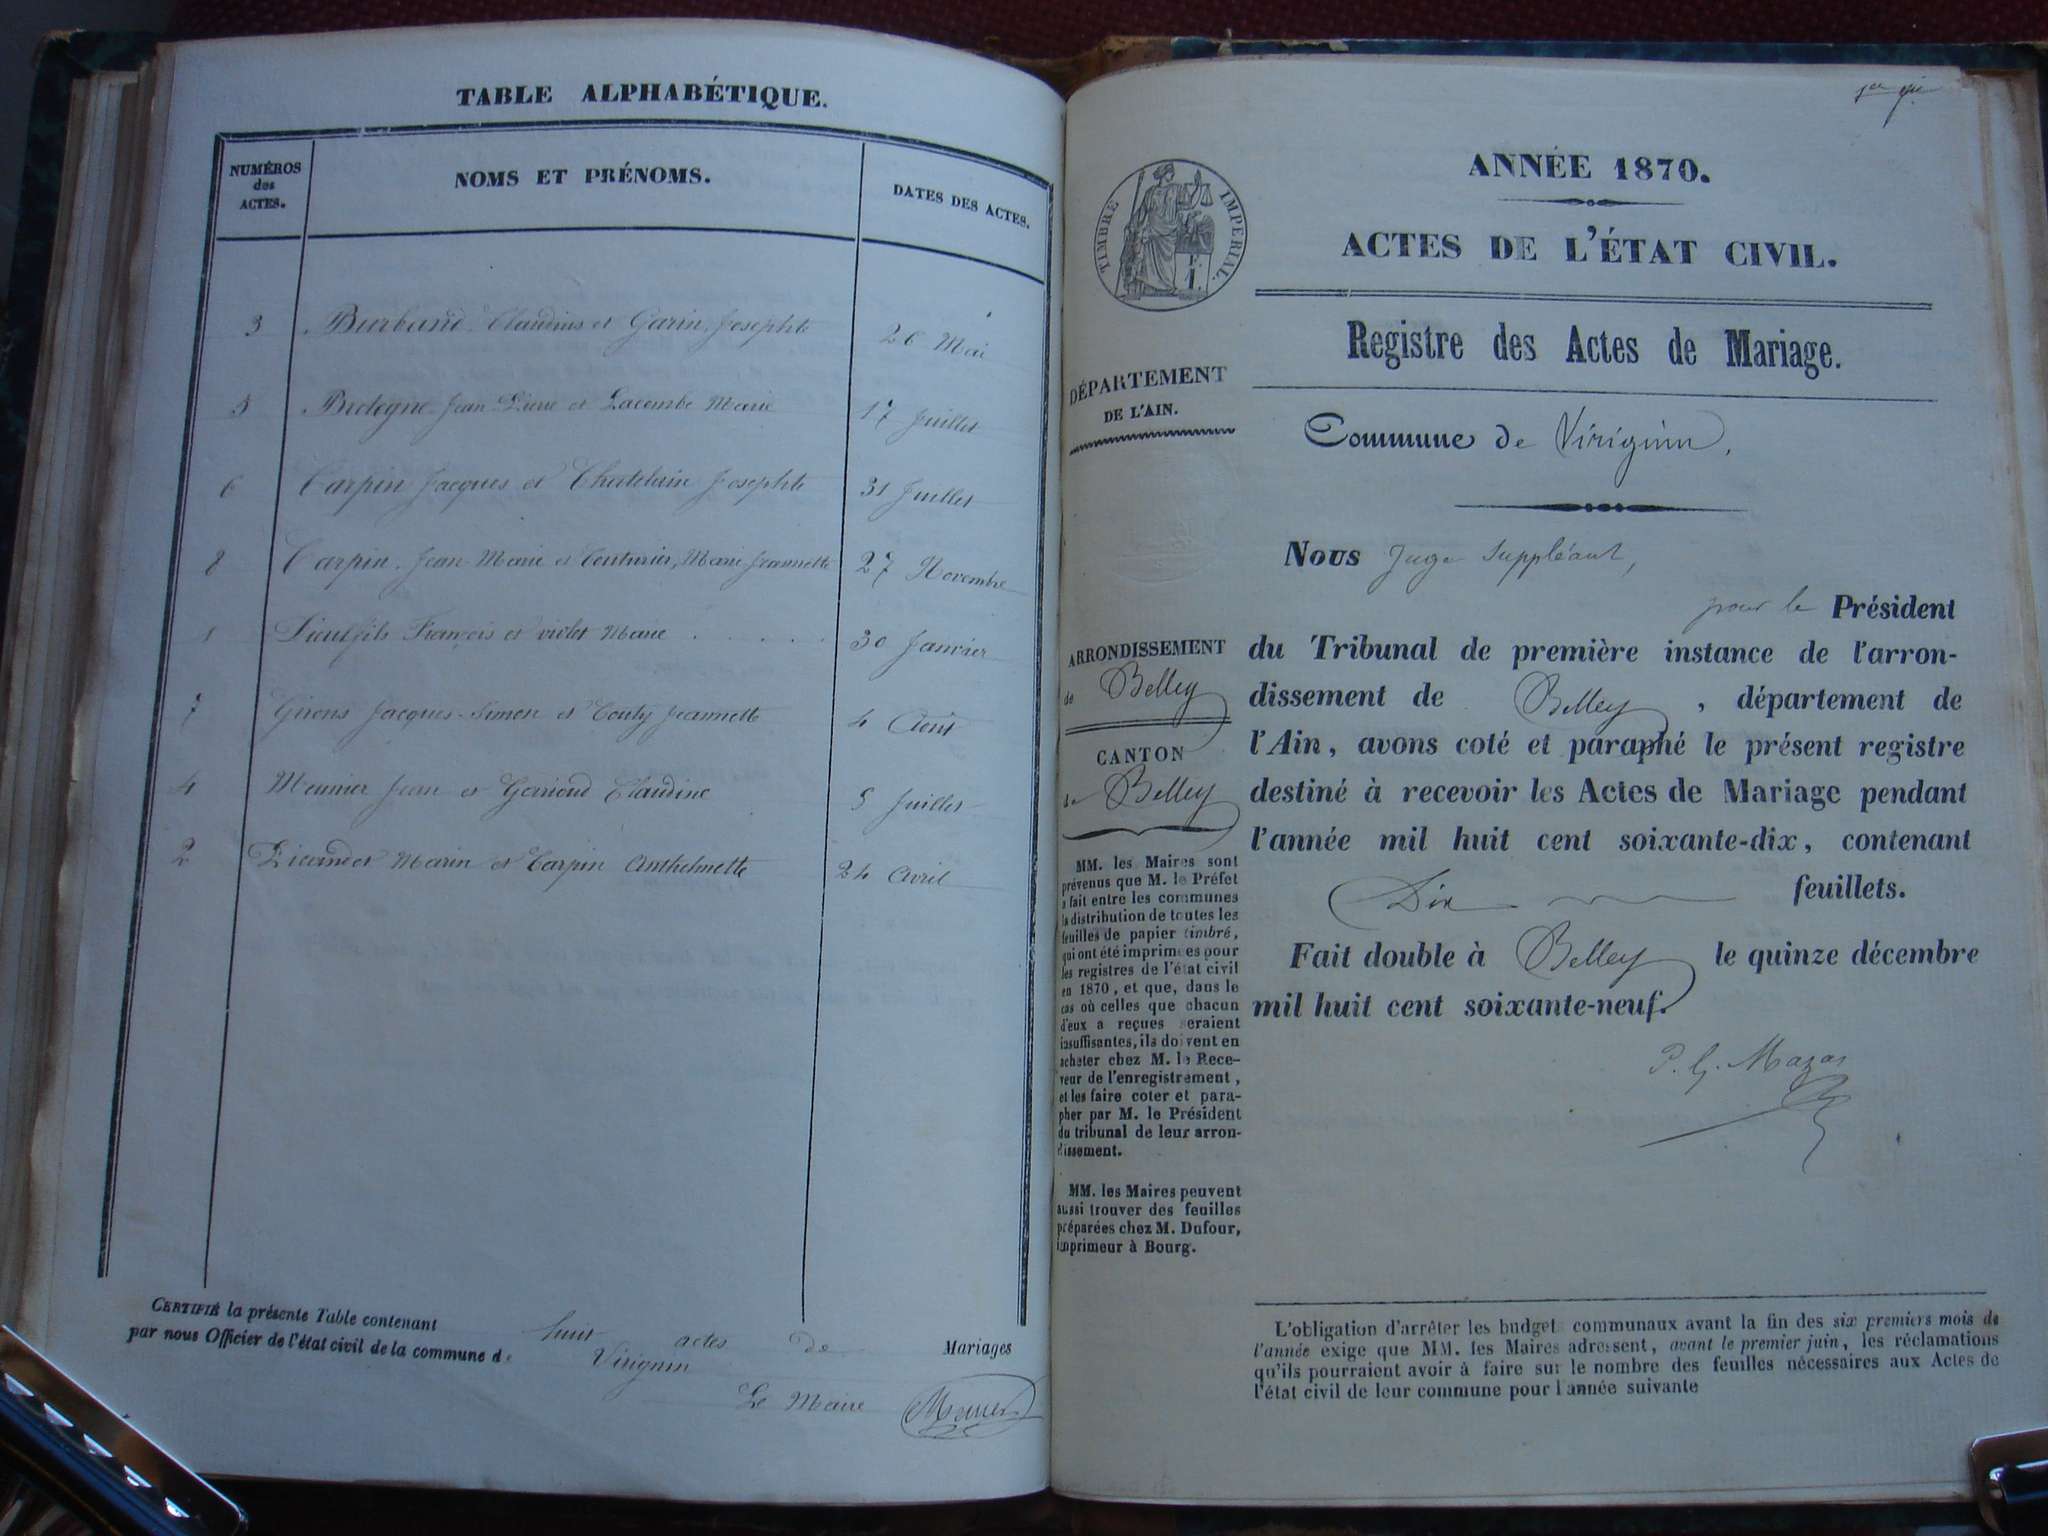 TABLE ALPHABÉTIQUE.
NUMÉROS des ACTES.
NOMS ET PRÉNOMS.
DATES DES ACTES.
3 Burband Claudius et Garin Josephte 26 Mai
5 Jean Pierre et Lacombe Marie 17 Juillet
6 Carpin Jacques et Chatelain Josephte 31 Juillet
8 Carpin Jean Marie et Couturier, Marie Jeannette 27 Novembre
1 Dieulfils François et violet Marie 30 Janvier
7 Jacques Simon et Jeannette 4 Aout
4 Meunier Jean et Claudine 5 Juillet
2 Marin et Carpin Anthelmette 24 Avril
CERTIFIÉ la présente Table contenant huit actes de Mariages
par nous Officier de l'état civil de la commune de Virignin
Le Maire
ANNÉE 1870.
ACTES DE L'ÉTAT CIVIL.
TIMBRE IMPÉRIAL.
Registre des Actes de Mariage.
DÉPARTEMENT
DE L'AIN.
Commune de Virignin,
Nous Juge Suppléant,
pour le Président
ARRONDISSEMENT
de Belley
CANTON
de Belley
du Tribunal de première instance de l'arron-
dissement de Belley, département de
l'Ain, avons coté et paraphé le présent registre
destiné à recevoir les Actes de Mariage pendant
l'année mil huit cent soixante-dix, contenant
Dix feuillets.
Fait double à Belley le quinze décembre
mil huit cent soixante-neuf.
P. G. Mazas
MM. les Maires sont
prévenus que M. le Préfet
a fait entre les communes
la distribution de toutes les
feuilles de papier timbré,
qui ont été imprimées pour
les registres de l'état civil
en 1870, et que, dans le
cas où celles que chacun
d'eux a reçues seraient
insuffisantes, ils doivent en
acheter chez M. le Rece-
veur de l'enregistrement,
et les faire coter et para-
pher par M. le Président
du tribunal de leur arron-
dissement.
MM. les Maires peuvent
aussi trouver des feuilles
préparées chez M. Dufour,
imprimeur à Bourg.
L'obligation d'arrêter les budgets communaux avant la fin des six premiers mois de
l'année exige que MM. les Maires adressent, avant le premier juin, les réclamations
qu'ils pourraient avoir à faire sur le nombre des feuilles nécessaires aux Actes de
l'état civil de leur commune pour l'année suivante